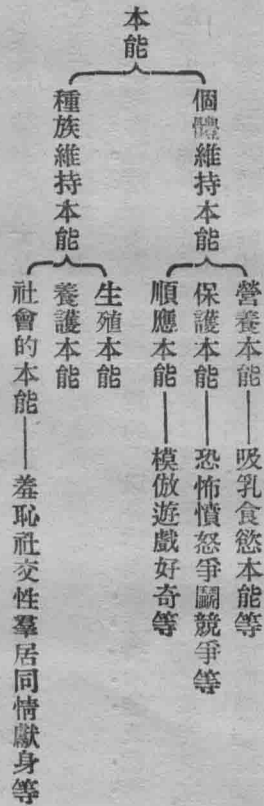 本能
個體維持本能
營養本能——吸乳食慾本能等
保護本能——恐怖憤怒爭鬭競爭等
順應本能——模倣遊戲好奇等
種族維持本能
生殖本能
養護本能
社會的本能——羞恥社交性羣居同情獻身等